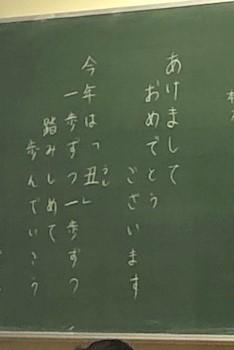 あけまして
おめでとう
ございます
今年は「丑」
うし
一歩ずつ一歩ずつ
踏みしめて
歩んでいこう